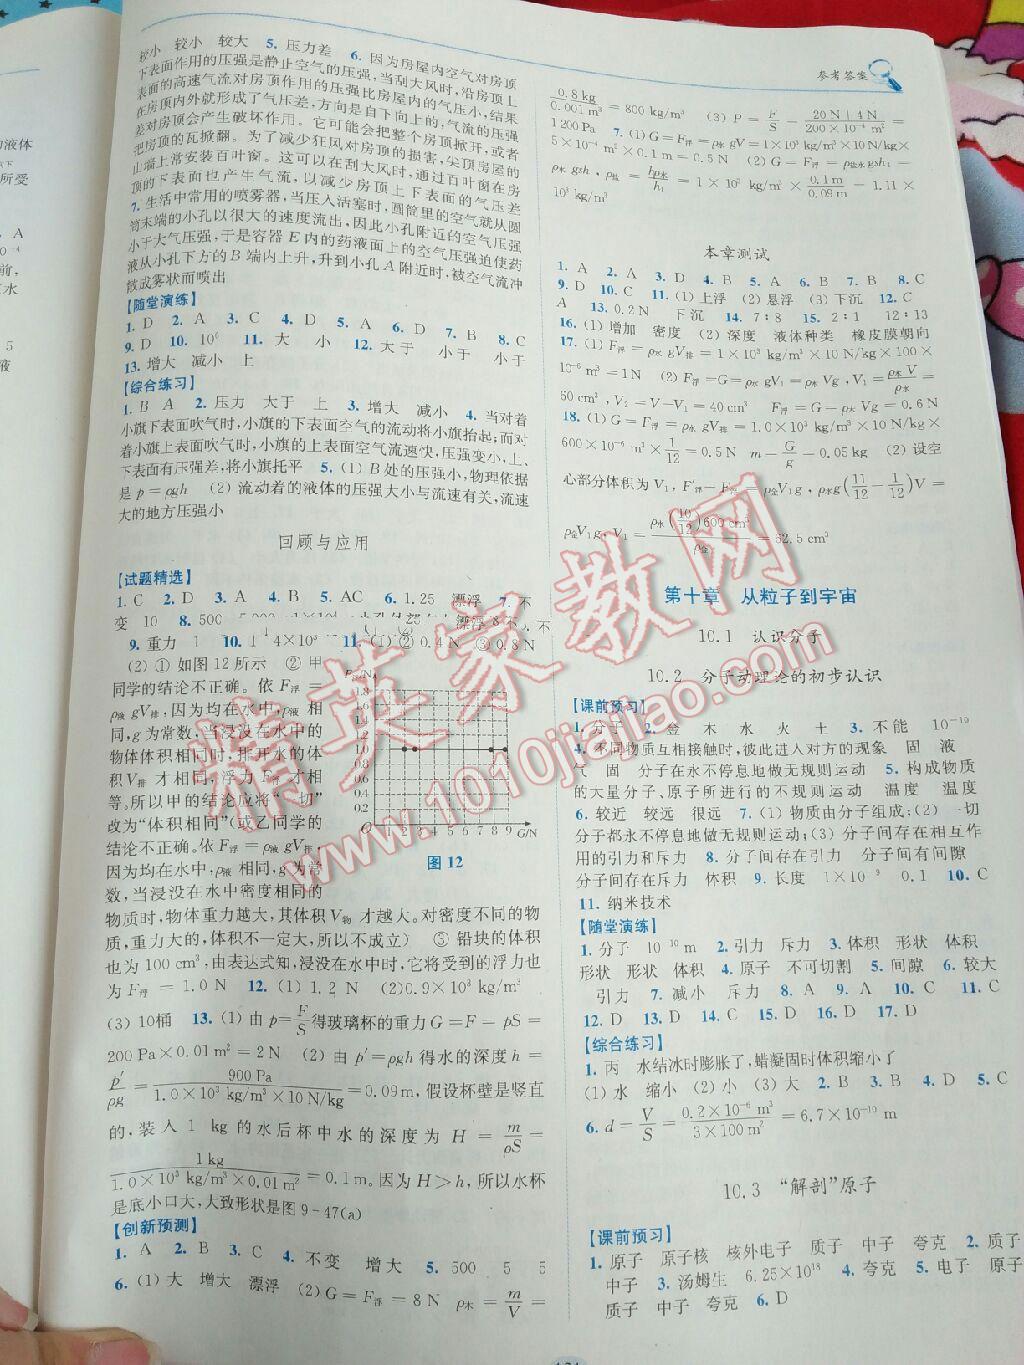 参考答案
较小 较小 较大 5. 压力差 6. 因为房屋内空气对房顶
下表面作用的压强是静止空气的压强,当刮大风时,沿房顶上
表面的高速气流对房顶作用的压强比房屋内的气压小,结果
在房顶内外就形成了气压差,方向是自下向上的,气流的压强
差对房顶会产生破坏作用。它可能会把整个房顶掀开,或者
把房顶的瓦掀翻。为了减少狂风对房顶的损害,尖顶房屋的
山墙上常安装百叶窗。这可以在刮大风时,通过百叶窗在房
顶的下表面也产生气流,以减少房顶上下表面的气压差
7. 生活中常用的喷雾器,当压入活塞时,圆筒里的空气就从圆
筒末端的小孔以很大的速度流出,因此小孔附近的空气压强
小于大气压强,于是容器 E 内的药液面上的空气压强迫使药
液从小孔下方的 B 端内上升,升到小孔 A 附近时,被空气流冲
散成雾状而喷出
【随堂演练】
1. D 2. A 3. C 4. A 5. C 6. D 7. B 8. C
9. D 10. 10⁶ 11. 大 小 12. 大于 小于 小于
13. 增大 减小 上
【综合练习】
1. B A 2. 压力 大于 上 3. 增大 减小 4. 当对着
小旗下表面吹气时,小旗的下表面空气的流动将小旗抬起;而对
着小旗上表面吹气时,小旗的上表面空气流速快,压强变小,上、
下表面有压强差,将小旗托平 5. (1) B处的压强小,物理依据
是 p=ρgh (2) 流动着的液体的压强大小与流速有关,流速
大的地方压强小
回顾与应用
【试题精选】
1. C 2. D 3. A 4. B 5. AC 6. 1.25 漂浮 7. 不
变 10 8. 500
9. 重力 1 10. 11. (1) ② 0.4 N ③ 0.8 N
(2) ① 如图12所示 ② 甲
同学的结论不正确。依 F浮 =
ρ液 gV排,因为均在水中,ρ液 相
同,g为常数,当浸没在水中的
物体体积相同时,排开水的体
积V排 才相同,浮力 F浮 才相
等,所以甲的结论应将“一切”
改为“体积相同”(或乙同学的
结论不正确。依 F浮 = ρ液 gV排,
因为均在水中,ρ液 相同,g为常
数,当浸没在水中密度相同的
物质时,物体重力越大,其体积V物 才越大。对密度不同的物
质,重力大的,体积不一定大,所以不成立) ③ 铅块的体积
也为 100 cm³,由表达式知,浸没在水中时,它将受到的浮力也
为 F浮 = 1.0 N 12. (1) 1.2 N (2)0.9×10³ kg/m³
(3) 10桶 13. (1) 由 p=F/S 得玻璃杯的重力 G=F=pS=
200 Pa×0.01 m²=2 N (2) 由 p′=ρgh 得水的深度 h=
p′/ρg = 900 Pa/(1.0×10³ kg/m³×10 N/kg) =0.09m,假设杯壁是竖直
的,装入 1 kg 的水后杯中水的深度为 H = m/ρS =
1 kg/(1.0×10³ kg/m³×0.01 m²) =0.1m。因为 H>h,所以水杯
是底小口大,大致形状是图 9-47(a)
【创新预测】
1. A 2. B 3. C 4. 不变 增大 5. 500 5 5
6. (1) 大 增大 漂浮 (2) G=F浮=8 N ρ木 = m/V =
1.8
1.2
1.0
0.8
0.6
0.4
0.2
O 1 2 3 4 5 6 7 8 9 G/N
图 12
0.8 kg/0.001 m³ =800 kg/m³ (3) P = F/S = (20 N+4 N)/(200×10⁻⁴ m²) =
1 200 Pa 7. (1) G=F浮=ρ水 gV=1×10³ kg/m³×10 N/kg×
5×10⁻⁴ m²×0.1 m=0.5 N (2) G=F浮=ρ盐水 gSh₁=
10³ kg/m³
本章测试
1. A 2. A 3. D 4. B 5. A 6. B 7. B 8. C
9. D 10. C 11. (1) 上浮 (2) 悬浮 (3) 下沉 12. C
A 13. 0.2 N 下沉 14. 7∶8 15. 2∶1 12∶13
16. (1) 增加 密度 (2) 深度 液体种类 橡皮膜朝向
17. (1) F浮=ρ水 gV排=1×10³ kg/m³×10 N/kg×100×
10⁻⁶ m³=1 N (2) F浮=G=ρ水 gV₁=ρ木 Vg,V₁= ρ木 V/ρ水 =
50 cm³, V₂=V-V₁=40 cm³ F浮=G=ρ木 Vg=0.6 N
18. (1) G=F浮=ρ水 gV排=1.0×10³ kg/m³×10 N/kg×
600×10⁻⁶ m³×1/12=0.5 N m=G/g=0.05 kg (2) 设空
心部分体积为 V₁, F′浮-F浮=ρ金V₁g, ρ水g(11/12-1/12)V=
ρ金V₁g, V₁= ρ水(10/12)600 cm³/ρ金
第十章 从粒子到宇宙
10.1 认识分子
10.2 分子动理论的初步认识
【课前预习】
1. 分子 2. 金 木 水 火 土 3. 不能 10⁻¹⁰
4. 不同物质互相接触时,彼此进入对方的现象 固 液
气 固 分子在永不停息地做无规则运动 5. 构成物质
的大量分子、原子所进行的不规则运动 温度 温度
6. 较近 较远 很远 7. (1) 物质由分子组成;(2) 一切
分子都永不停息地做无规则运动;(3) 分子间存在相互作
用的引力和斥力 8. 分子间存在引力 分子间有间隙
分子间存在斥力 体积 9. 长度 1×10⁻⁹ 0.1 10. C
11. 纳米技术
【随堂演练】
1. 分子 10⁻¹⁰ m 2. 引力 斥力 3. 体积 形状 体积
形状 形状 体积 4. 原子 不可切割 5. 间隙 6. 较大
引力 7. 减小 斥力 8. A 9. A 10. C 11. C
12. D 13. D 14. C 15. D 16. D 17. D
【综合练习】
1. 丙 水结冰时膨胀了,蜡凝固时体积缩小了
(1) 水 缩小 (2) 小 (3) 大 2. B 3. B 4. D 5. C
6. d= V/S = 0.2×10⁻⁶ m³/3×100 m² =6.7×10⁻¹⁰ m
10.3 “解剖”原子
【课前预习】
1. 原子 原子核 核外电子 质子 中子 夸克 2. 质子
中子 3. 汤姆生 6.25×10¹⁸ 4. 夸克 5. 电子 原子
质子 中子 夸克 6. D
精英家教网
www.1010jiajiao.com